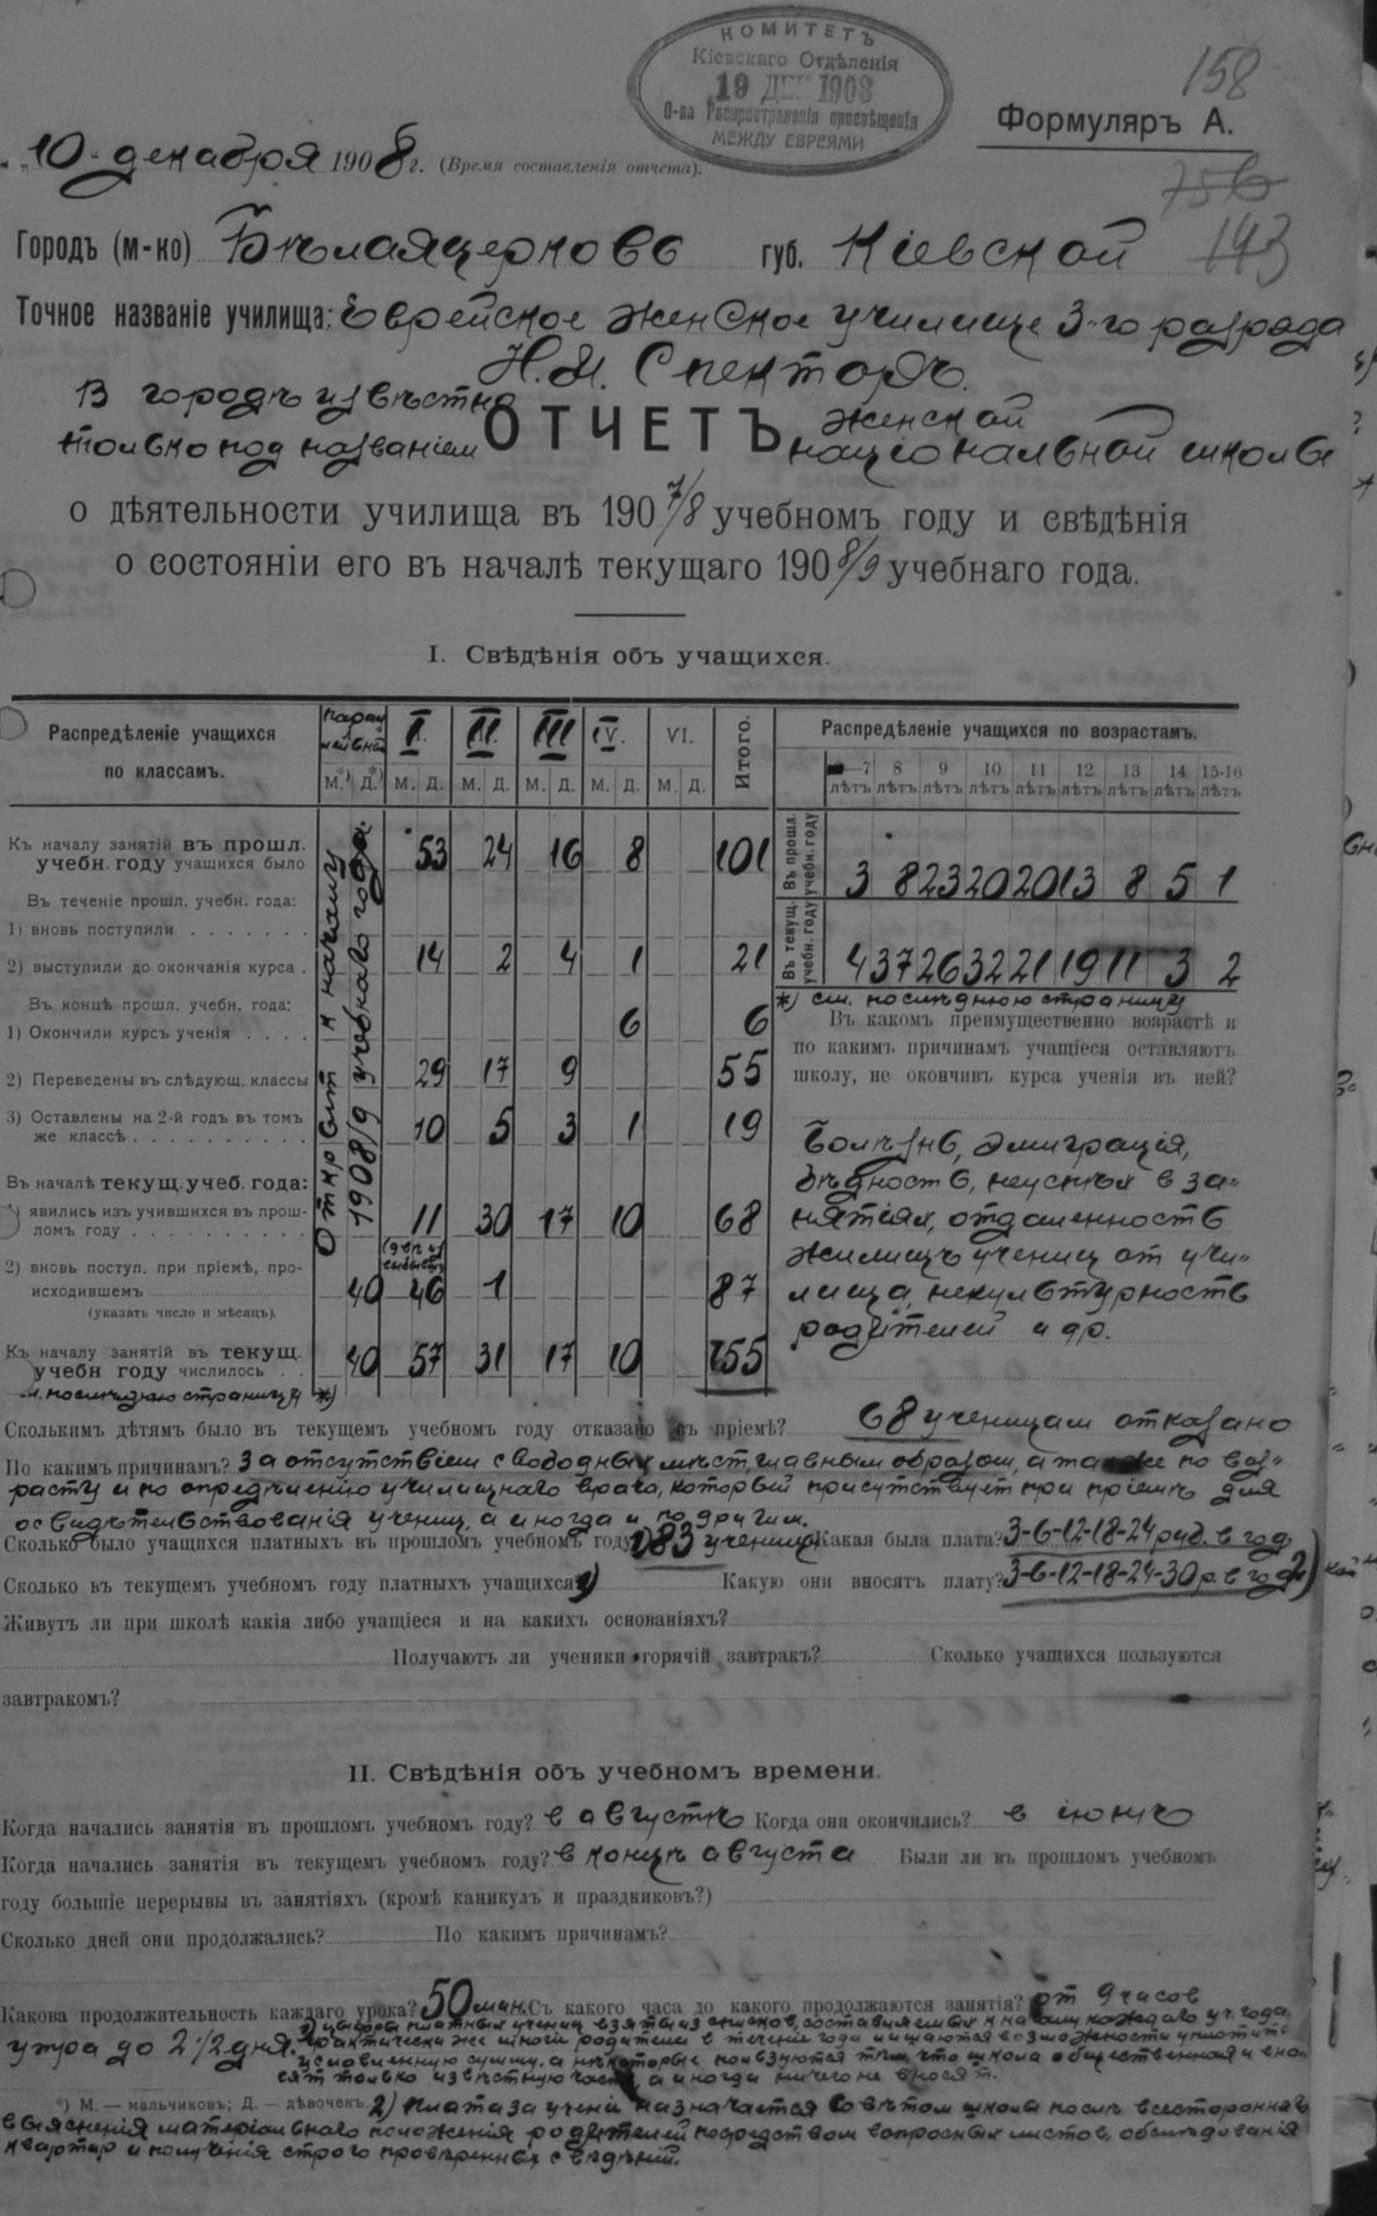 КОМИТЕТЪ
Кіевскаго Отдѣленія
19 ДЕК 1908
О-ва Распространенія просвѣщенія
МЕЖДУ ЕВРЕЯМИ
158
Формуляръ А.
10 декабря 1908 г. (Время составленія отчета).
756
143
Городъ (м-ко) Бѣлаяцерковь губ. Кіевской
Точное названіе училища: Еврейское женское училище 3-го разряда
Н.И. Спекторъ.
В городѣ извѣстно только под названіем женской національной школы
ОТЧЕТЪ
о дѣятельности училища въ 1907/8 учебномъ году и свѣдѣнія
о состояніи его въ началѣ текущаго 1908/9 учебнаго года.
I. Свѣдѣнія объ учащихся.
Распредѣленіе учащихся по классамъ. I. II. III IV. VI. Итого.
М.*) Д.*) М. Д. М. Д. М. Д. М. Д. М. Д.
Открыт к началу 1908/9 учебнаго года.
Къ началу занятій въ прошл. учебн. году учащихся было 53 24 16 8 101
Въ теченіе прошл. учебн. года:
1) вновь поступили
2) выступили до окончанія курса 14 2 4 1 21
Въ концѣ прошл. учебн. года:
1) Окончили курсъ ученія 6 6
2) Переведены въ слѣдующ. классы 29 17 9 55
3) Оставлены на 2-й годъ въ томъ же классѣ 10 5 3 1 19
Въ началѣ текущ. учеб. года:
1) явились изъ учившихся въ прошломъ году 11 30 17 10 68
2) вновь поступ. при пріемѣ, происходившемъ 40 46 1 87
(указать число и мѣсяцъ).
Къ началу занятій въ текущ. учебн году числилось 40 57 31 17 10 155
см. послѣднюю страницу *)
Распредѣленіе учащихся по возрастамъ.
7 8 9 10 11 12 13 14 15-16
лѣтъ лѣтъ лѣтъ лѣтъ лѣтъ лѣтъ лѣтъ лѣтъ лѣтъ
Въ прошл. учебн. году 3 8 23 20 20 13 8 5 1
Въ текущ. учебн. году 4 37 26 32 21 19 11 3 2
*) см. послѣднюю страницу
Въ какомъ преимущественно возрастѣ и
по какимъ причинамъ учащіеся оставляютъ
школу, не окончивъ курса ученія въ ней?
Болѣзнь, эмиграція,
бѣдность, неуспѣх в за-
нятіях, отдаленность
жилищъ учениц от учи-
лища, некультурность
родителей и др.
Сколькимъ дѣтямъ было въ текущемъ учебномъ году отказано въ пріемѣ? 68 ученицам отказано
По какимъ причинамъ? За отсутствіем свободных мѣст, главным образом, а также по воз-
расту и по опредѣленію училищнаго врача, который присутствует при пріемѣ для
освидѣтельствованія учениц, а иногда и по другим.
Сколько было учащихся платныхъ въ прошломъ учебномъ году 1) 83 ученицы Какая была плата? 3-6-12-18-24 руб. в год
Сколько въ текущемъ учебномъ году платныхъ учащихся? Какую они вносятъ плату? 3-6-12-18-24-30 р. в год 2)
Живутъ ли при школѣ какія либо учащіеся и на какихъ основаніяхъ?
Получаютъ ли ученики горячій завтракъ? Сколько учащихся пользуются
завтракомъ?
II. Свѣдѣнія объ учебномъ времени.
Когда начались занятія въ прошломъ учебномъ году? в августѣ Когда они окончились? в іюнѣ
Когда начались занятія въ текущемъ учебномъ году? в концѣ августа Были ли въ прошломъ учебномъ
году большіе перерывы въ занятіяхъ (кромѣ каникулъ и праздниковъ?)
Сколько дней они продолжались? По какимъ причинамъ?
Какова продолжительность каждаго урока? 50 мин. Съ какого часа до какого продолжаются занятія? от 9 часов
утра до 2 1/2 дня.
1) цыфры платных учениц взяты из списков, составляемых к началу каждаго уч. года,
практически же многіе родители в теченіе года лишаются возможности уплотить
условленную сумму, а нѣкоторые пользуются тѣм, что школа общественная и вно-
сят только извѣстную часть, а иногда ничего не вносят.
*) М. — мальчиковъ; Д. — дѣвочекъ. 2) Плата за ученіе назначается Совѣтом школы послѣ всесторонняго
выясненія матеріальнаго положенія родителей посредством вопросных листов, обслѣдованія
квартир и полученія строго провѣренных свѣдѣній.